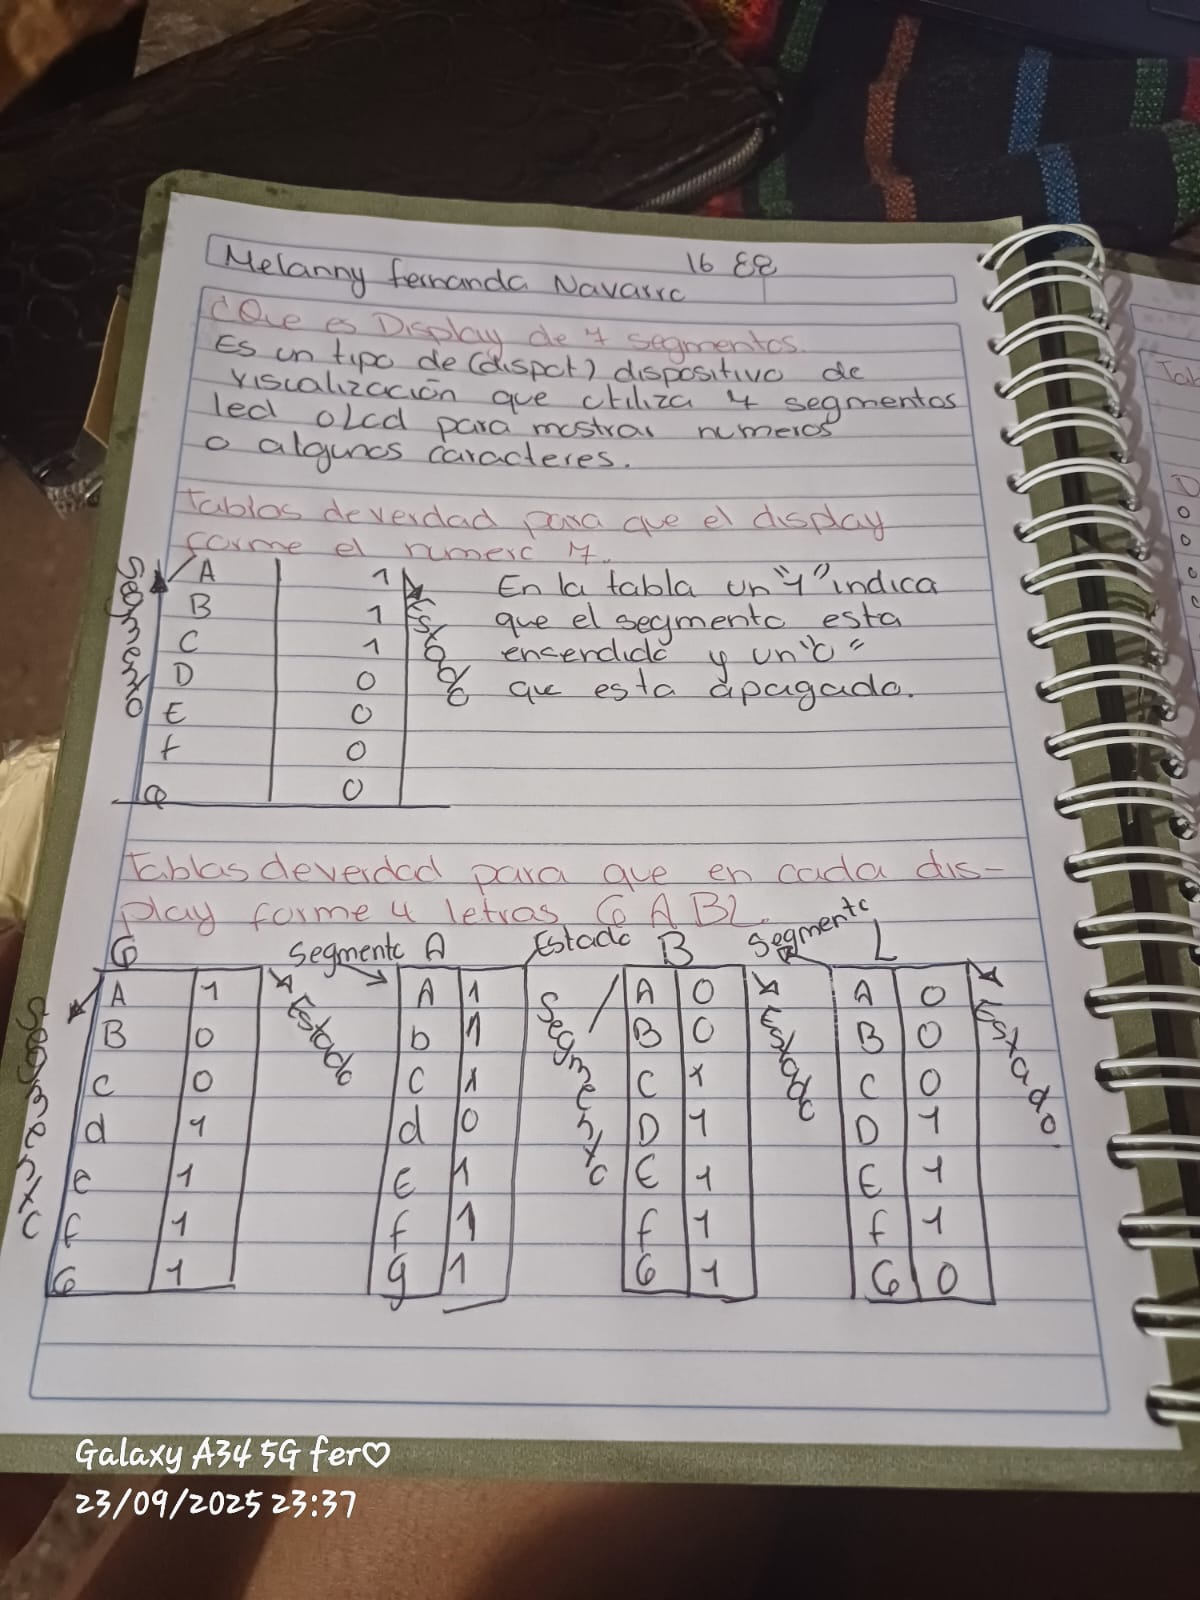 Melanny Fernanda Navarro 16 E8
¿Que es Display de 7 segmentos.
Es un tipo de (dispot) dispositivo de
viscalización que utiliza 7 segmentos
led o Lcd para mostrar numeros
o algunos caracteres.
Tablas de verdad para que el display
forme el numero 7.
Segmento
Estado
A 1
B 1
C 1
D 0
E 0
f 0
G 0
En la tabla un "1" indica
que el segmento esta
enserdido y un "0"
que esta apagado.
Tablas de verdad para que en cada dis-
play forme 4 letras G A B L.
G
Segmento
Estado
A 1
B 0
c 0
d 1
e 1
f 1
G 1
Segmento A Estado
A 1
b 1
C 1
d 0
E 1
f 1
g 1
B
Segmento
Estado
A 0
B 0
C 1
D 1
E 1
f 1
G 1
Segmento L
Estado
A 0
B 0
C 0
D 1
E 1
f 1
G 0
Tab
D
0
0
0
Galaxy A34 5G fer♡
23/09/2025 23:37